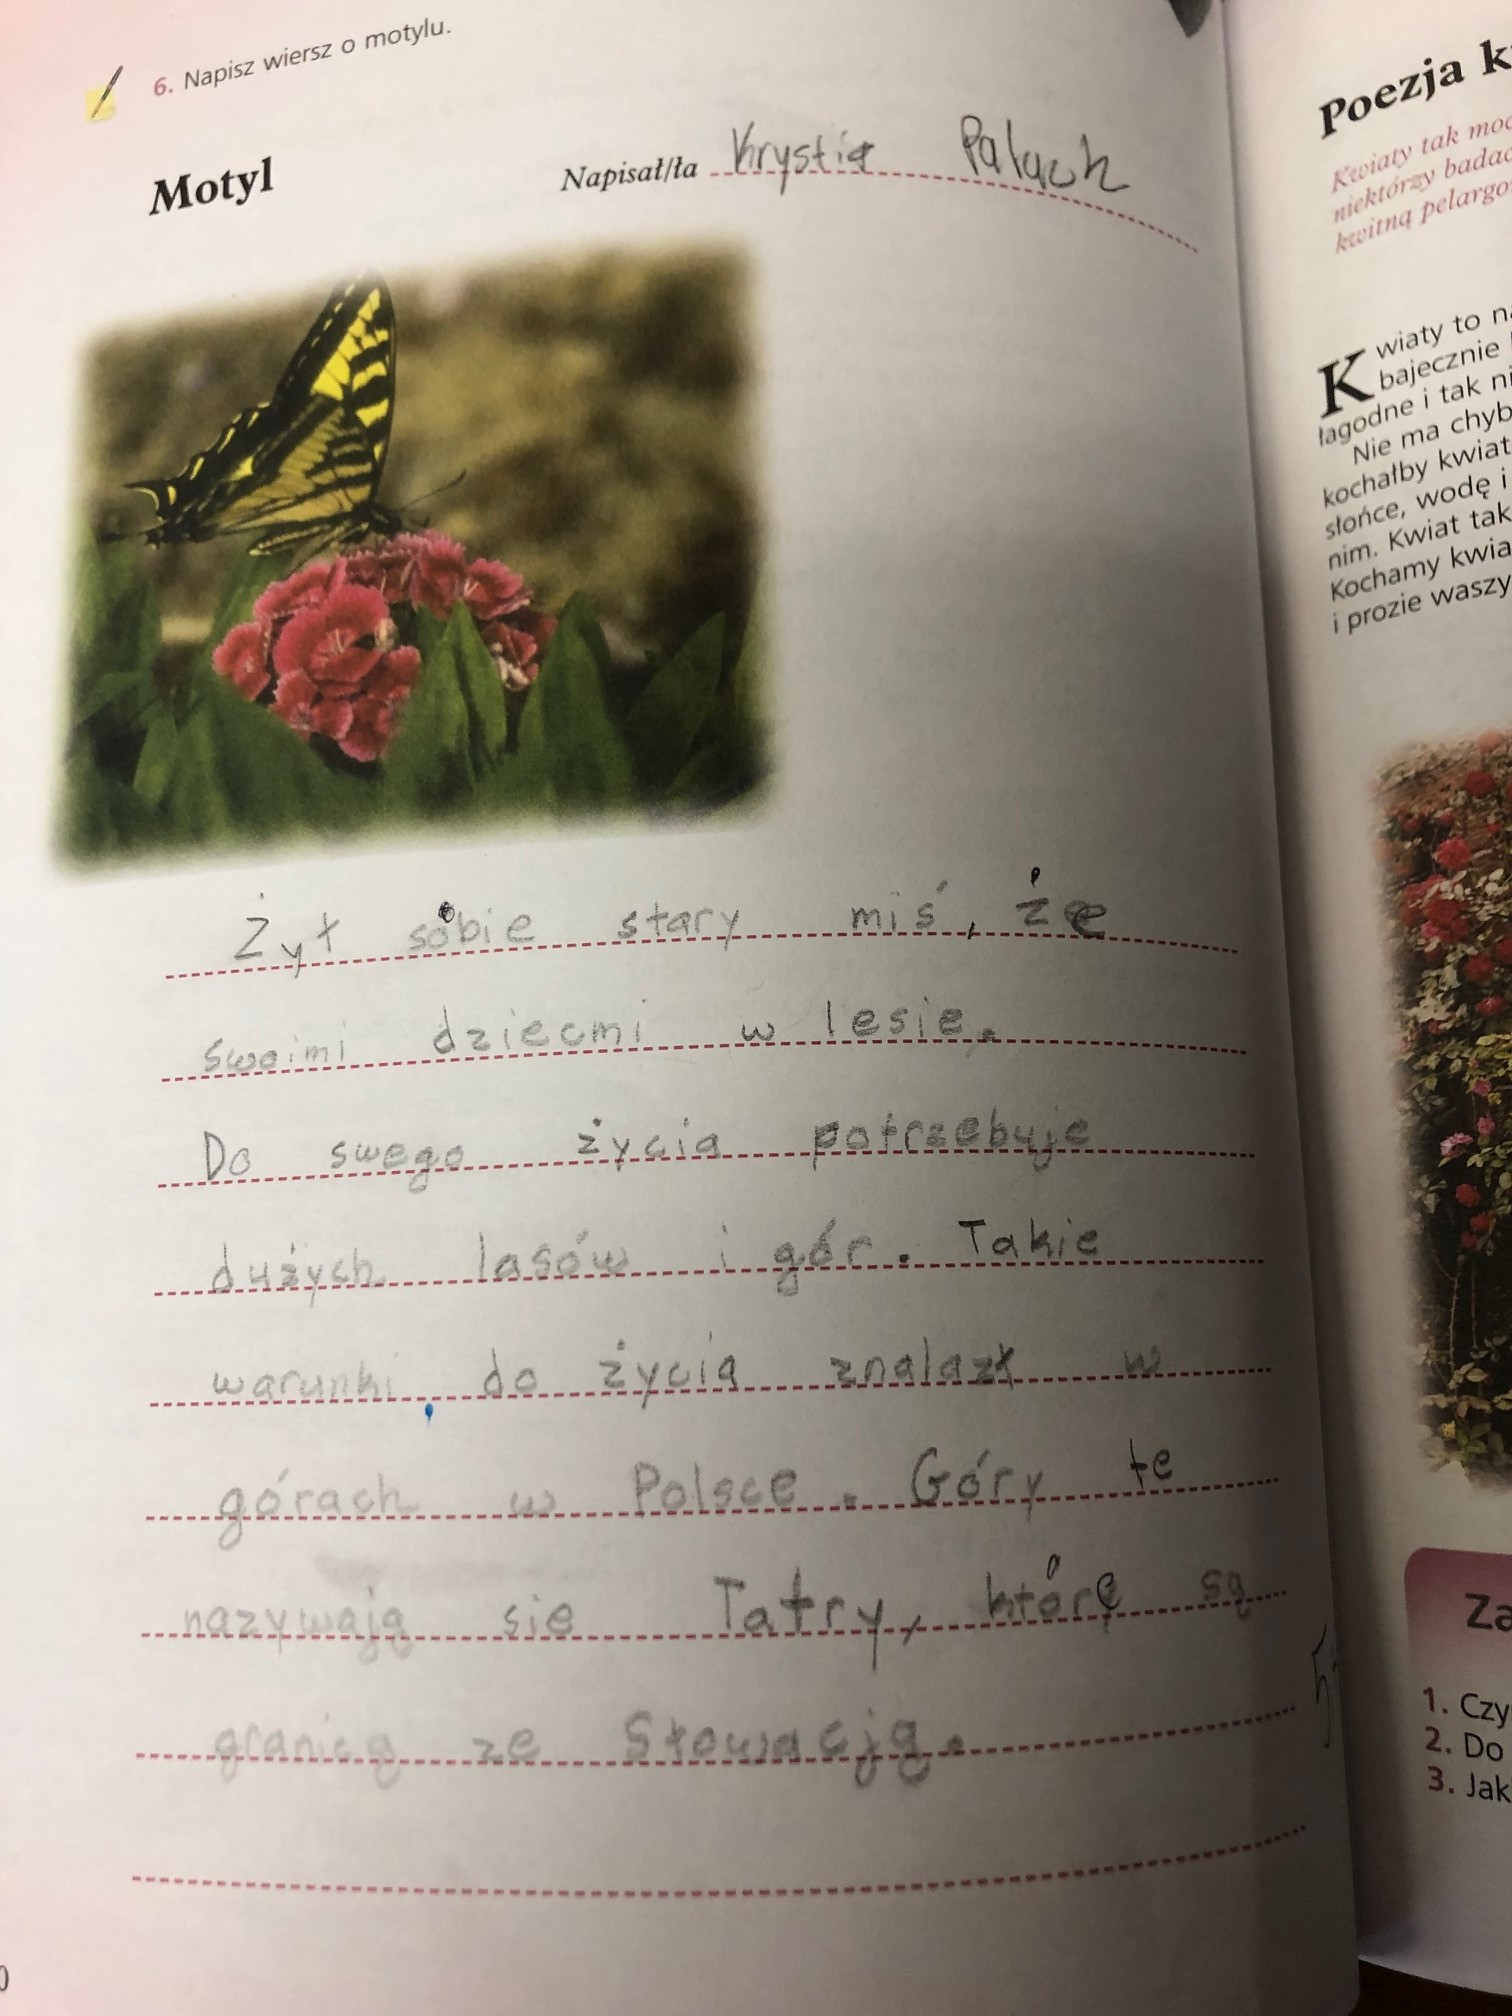 6. Napisz wiersz o motylu.
Motyl
Napisał/ła Krystia Palach
Żył sobie stary miś, że
swoimi dziecmi w lesie.
Do swego życia potrzebuje
dużych lasów i gór. Takie
warunki do życia znalazł w
górach w Polsce. Góry te
nazywają sie Tatry, którę są
granicą ze Słowacją.
5+
0
Poezja
Kwiaty tak
niektórzy
kwitną
Kwiaty to
bajecznie
łagodne i tak
Nie ma
kochałby
słońce, wodę i
nim. Kwiat tak
Kochamy
i prozie
1. Czy
2. Do
3.